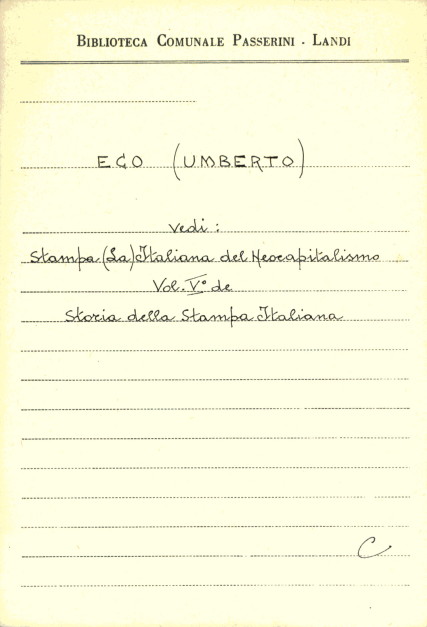 BIBLIOTECA COMUNALE PASSERINI - LANDI
ECO (UMBERTO)
Vedi:
Stampa (La) Italiana del Neocapitalismo
Vol. V° de
Storia della Stampa Italiana
C